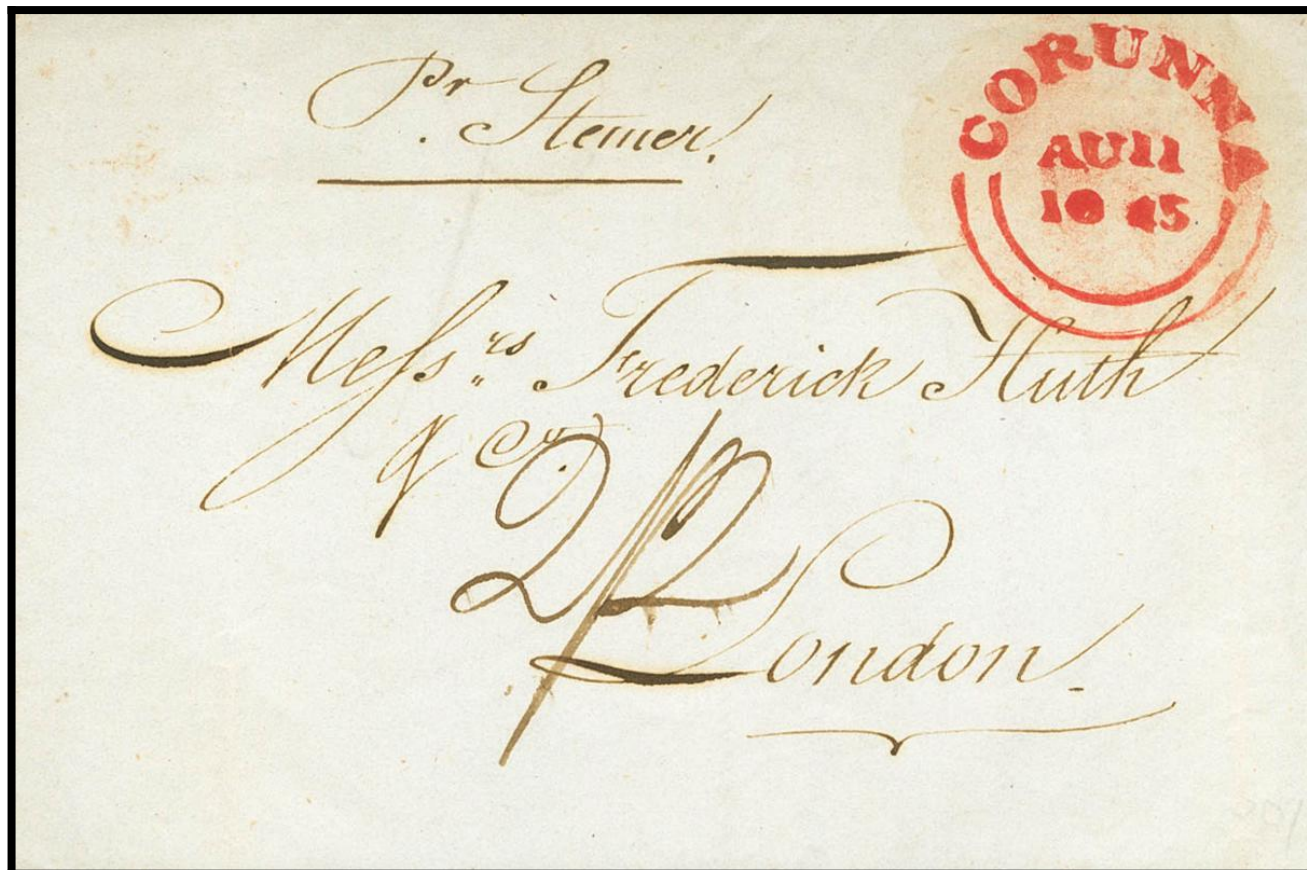 Pr. Stemer.
CORUNNA
AU 11
1845
Messrs Frederick Huth
& Co.
2/2
London.